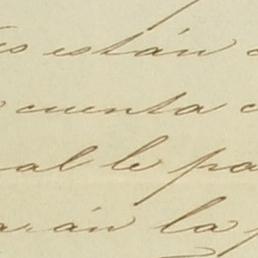 están
cuenta
al le pa
án la